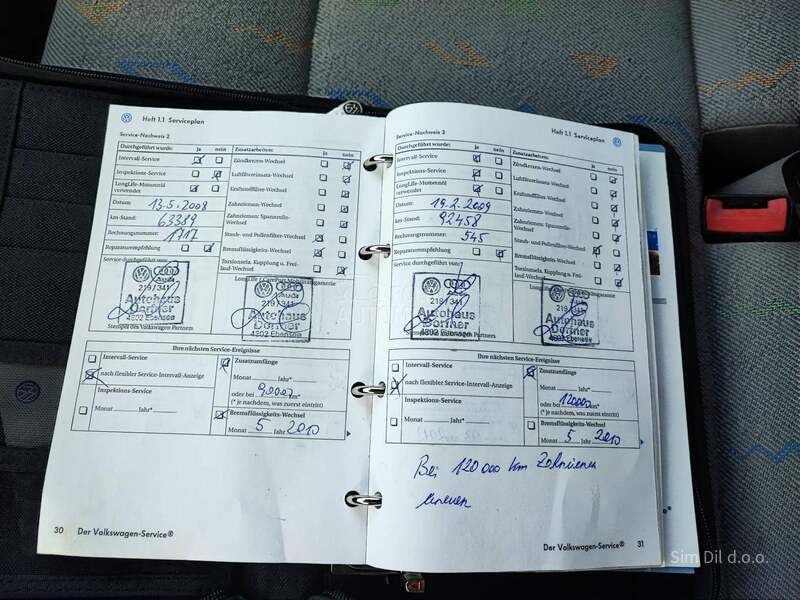 Heft 1.1 Serviceplan
Service-Nachweis 2
Durchgeführt wurde: ja nein
Intervall-Service
Inspektions-Service
LongLife-Motorenöl verwendet
Datum: 13.5.2008
km-Stand: 63389
Rechnungsnummer: 1717
Reparaturempfehlung
Service durchgeführt vom:
Zusatzarbeiten: ja nein
Zündkerzen-Wechsel
Luftfiltereinsatz-Wechsel
Kraftstofffilter-Wechsel
Zahnriemen-Wechsel
Zahnriemen-Spannrolle-Wechsel
Staub- und Pollenfilter-Wechsel
Bremsflüssigkeits-Wechsel
Torsionsela. Kupplung u. Freilauf-Wechsel
Audi
219/341
Autohaus
Dorfner
4802 Ebensee
Audi
219/341
Autohaus
Dorfner
4802 Ebensee
Stempel des Volkswagen Partners
Ihre nächsten Service-Ereignisse
Intervall-Service
nach flexibler Service-Intervall-Anzeige
Inspektions-Service
Monat Jahr*
Zusatzumfänge
Monat Jahr*
oder bei 90000 km*
(* je nachdem, was zuerst eintritt)
Bremsflüssigkeits-Wechsel
Monat 5 Jahr 2010
30 Der Volkswagen-Service®
Heft 1.1 Serviceplan
Service-Nachweis 3
Durchgeführt wurde: ja nein
Intervall-Service
Inspektions-Service
LongLife-Motorenöl verwendet
Datum: 19.2.2009
km-Stand: 92458
Rechnungsnummer: 545
Reparaturempfehlung
Service durchgeführt vom:
Zusatzarbeiten: ja nein
Zündkerzen-Wechsel
Luftfiltereinsatz-Wechsel
Kraftstofffilter-Wechsel
Zahnriemen-Wechsel
Zahnriemen-Spannrolle-Wechsel
Staub- und Pollenfilter-Wechsel
Bremsflüssigkeits-Wechsel
Torsionsela. Kupplung u. Freilauf-Wechsel
Audi
219/341
Autohaus
Dorfner
4802 Ebensee
Audi
219/341
Autohaus
Dorfner
4802 Ebensee
Ihre nächsten Service-Ereignisse
Intervall-Service
nach flexibler Service-Intervall-Anzeige
Inspektions-Service
Monat Jahr*
Zusatzumfänge
Monat Jahr*
oder bei 120000 km*
(* je nachdem, was zuerst eintritt)
Bremsflüssigkeits-Wechsel
Monat 5 Jahr 2010
Bei 120 000 km Zahnriemen
erneuern
Der Volkswagen-Service® 31
Sim Dil d.o.o.